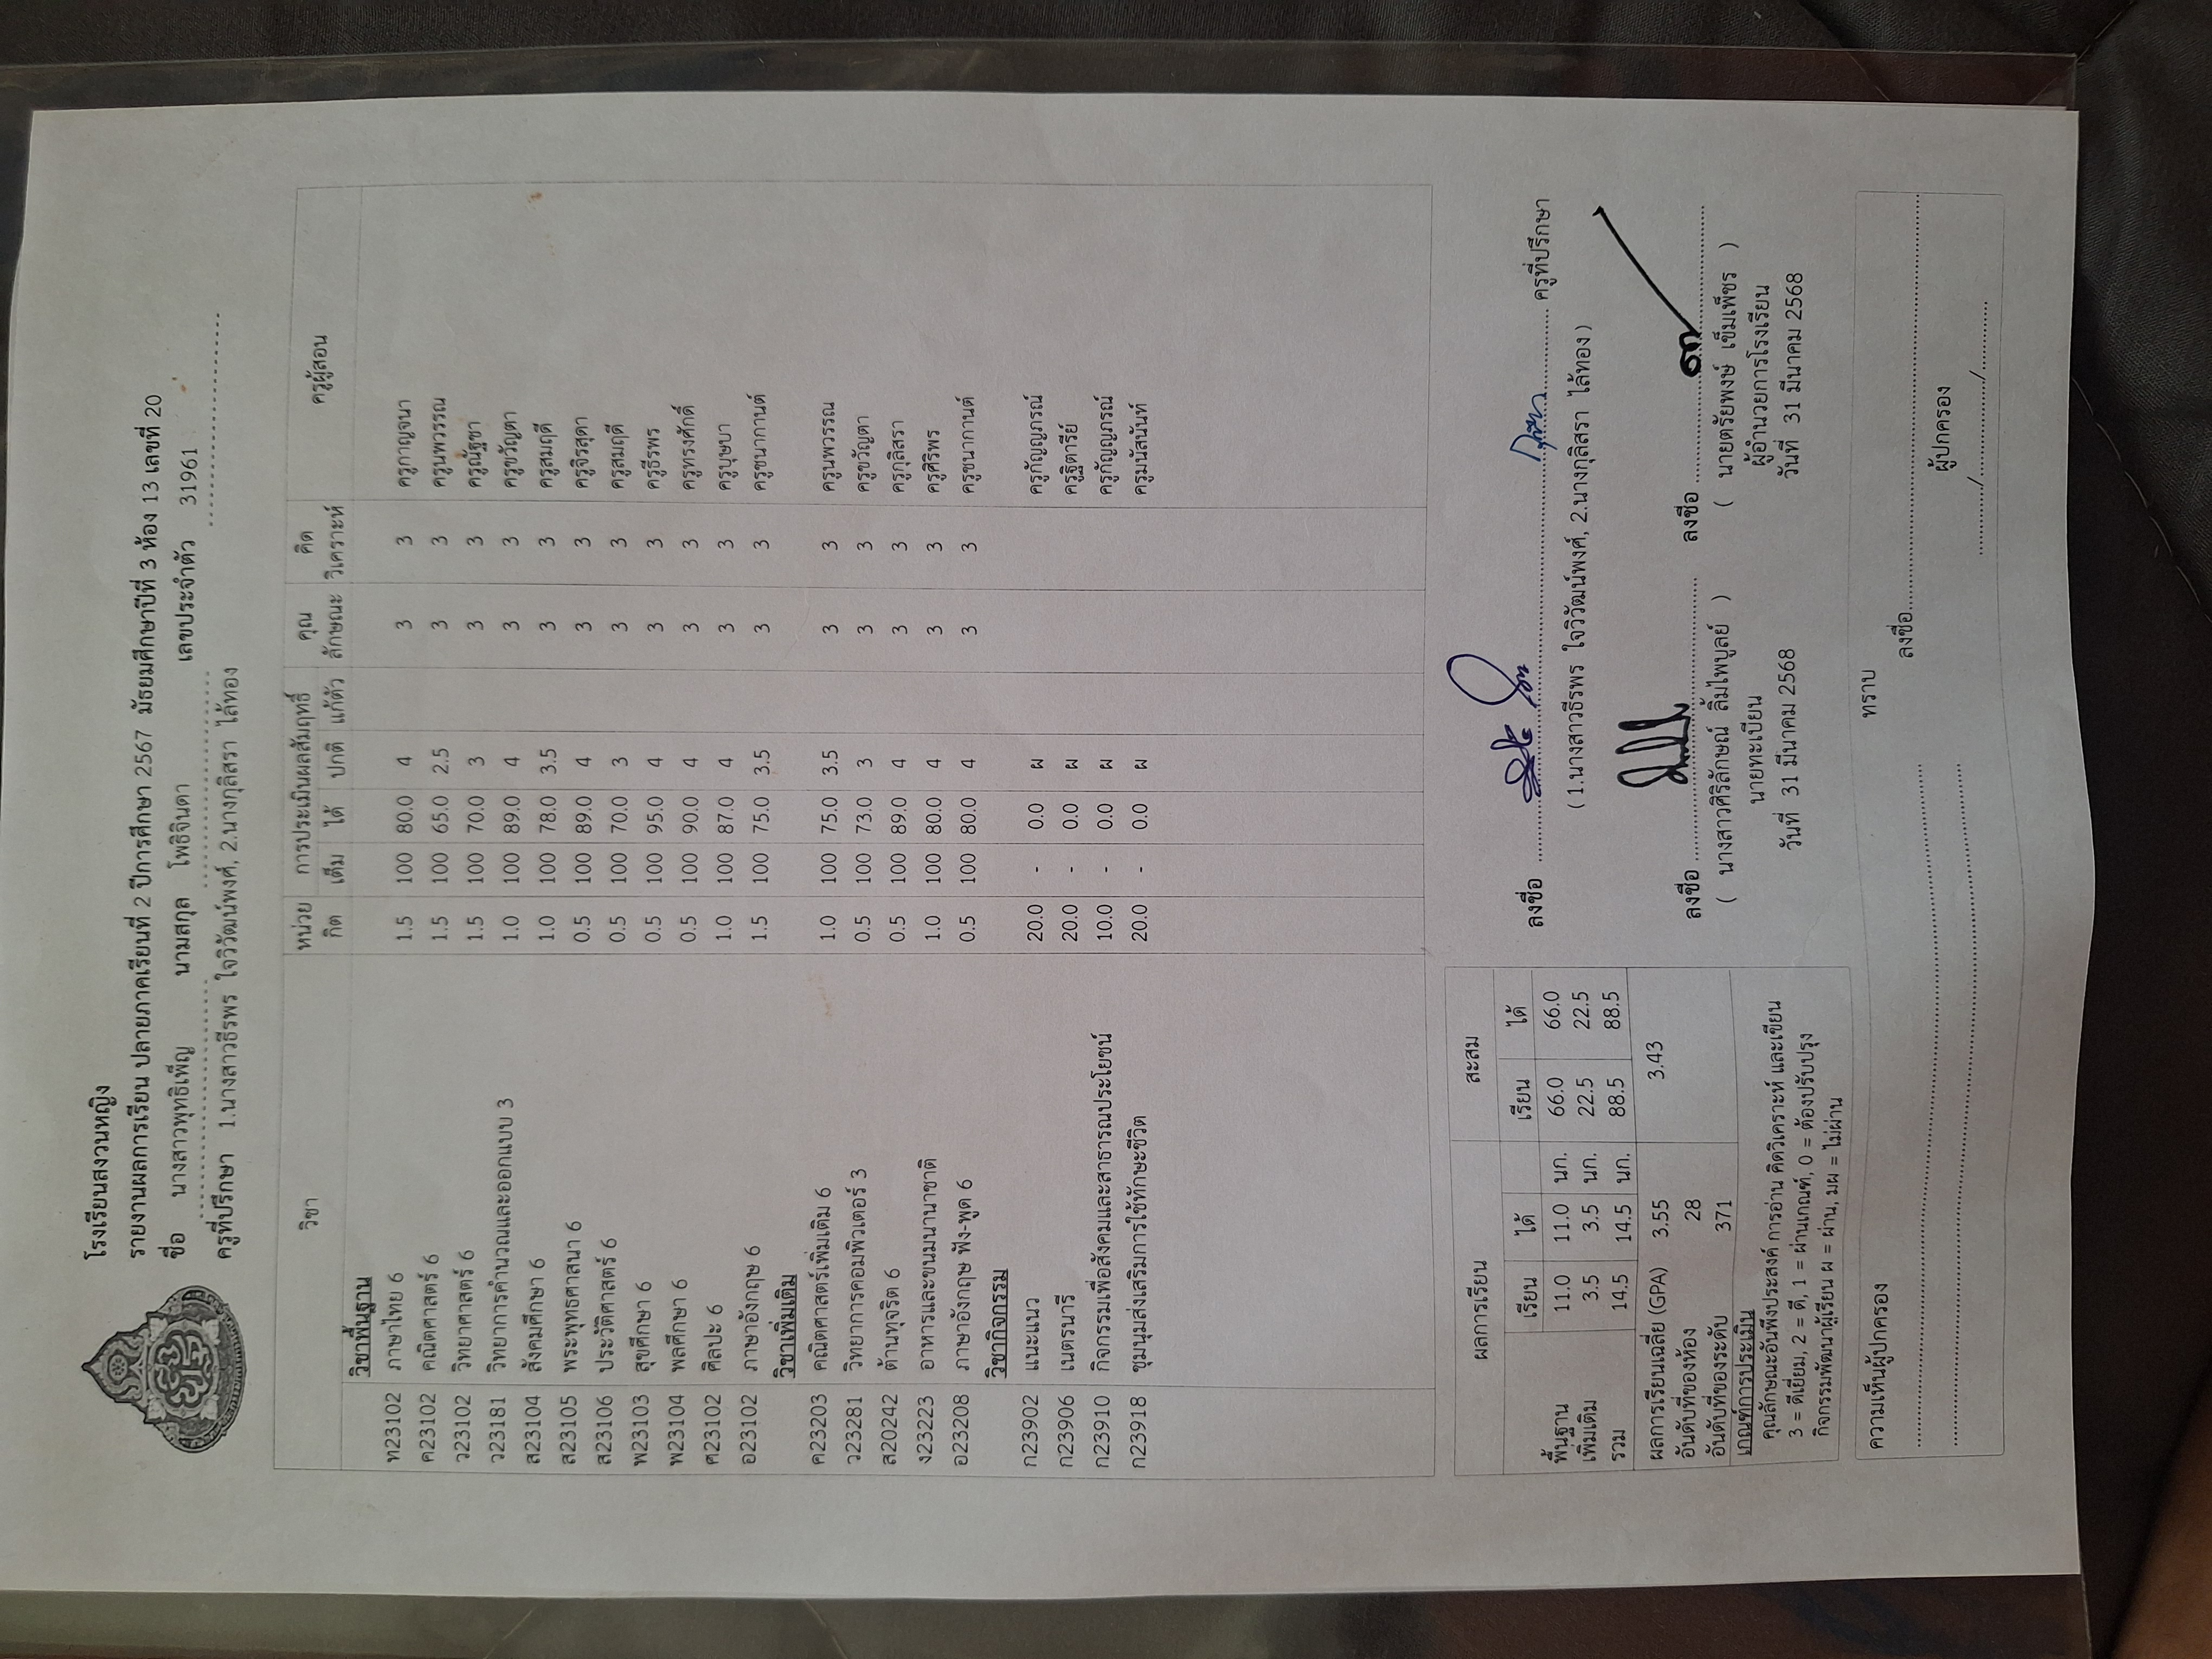 โรงเรียนสงวนหญิง
รายงานผลการเรียน ปลายภาคเรียนที่ 2 ปีการศึกษา 2567 มัธยมศึกษาปีที่ 3 ห้อง 13 เลขที่ 20
ชื่อ นางสาวพุทธิเพ็ญ นามสกุล โพธิจินดา เลขประจำตัว 31961
ครูที่ปรึกษา 1.นางสาวธีรพร ใจวิวัฒน์พงศ์, 2.นางกุลิสรา ไล้ทอง
วิชา หน่วยกิต การประเมินผลสัมฤทธิ์ คุณลักษณะ คิดวิเคราะห์ ครูผู้สอน
เต็ม ได้ ปกติ แก้ตัว
วิชาพื้นฐาน
ท23102 ภาษาไทย 6 1.5 100 80.0 4 3 3 ครูกาญจนา
ค23102 คณิตศาสตร์ 6 1.5 100 65.0 2.5 3 3 ครูนพวรรณ
ว23102 วิทยาศาสตร์ 6 1.5 100 70.0 3 3 3 ครูณัฐชา
ว23181 วิทยาการคำนวณและออกแบบ 3 1.0 100 89.0 4 3 3 ครูขวัญตา
ส23104 สังคมศึกษา 6 1.0 100 78.0 3.5 3 3 ครูสมฤดี
ส23105 พระพุทธศาสนา 6 0.5 100 89.0 4 3 3 ครูจิรสุดา
ส23106 ประวัติศาสตร์ 6 0.5 100 70.0 3 3 3 ครูสมฤดี
พ23103 สุขศึกษา 6 0.5 100 95.0 4 3 3 ครูธีรพร
พ23104 พลศึกษา 6 0.5 100 90.0 4 3 3 ครูทรงศักดิ์
ศ23102 ศิลปะ 6 1.0 100 87.0 4 3 3 ครูบุษบา
อ23102 ภาษาอังกฤษ 6 1.5 100 75.0 3.5 3 3 ครูชนากานต์
วิชาเพิ่มเติม
ค23203 คณิตศาสตร์เพิ่มเติม 6 1.0 100 75.0 3.5 3 3 ครูนพวรรณ
ว23281 วิทยาการคอมพิวเตอร์ 3 0.5 100 73.0 3 3 3 ครูขวัญตา
ส20242 ต้านทุจริต 6 0.5 100 89.0 4 3 3 ครูกุลิสรา
ง23223 อาหารและขนมนานาชาติ 1.0 100 80.0 4 3 3 ครูศิริพร
อ23208 ภาษาอังกฤษ ฟัง-พูด 6 0.5 100 80.0 4 3 3 ครูชนากานต์
วิชากิจกรรม
ก23902 แนะแนว 20.0 - 0.0 ผ ครูกัญญภรณ์
ก23906 เนตรนารี 20.0 - 0.0 ผ ครูฐิตารีย์
ก23910 กิจกรรมเพื่อสังคมและสาธารณประโยชน์ 10.0 - 0.0 ผ ครูกัญญภรณ์
ก23918 ชุมนุมส่งเสริมการใช้ทักษะชีวิต 20.0 - 0.0 ผ ครูมนัสนันท์
ผลการเรียน สะสม
เรียน ได้ เรียน ได้
พื้นฐาน 11.0 11.0 นก. 66.0 66.0
เพิ่มเติม 3.5 3.5 นก. 22.5 22.5
รวม 14.5 14.5 นก. 88.5 88.5
ผลการเรียนเฉลี่ย (GPA) 3.55 3.43
อันดับที่ของห้อง 28
อันดับที่ของระดับ 371
เกณฑ์การประเมิน
คุณลักษณะอันพึงประสงค์ การอ่าน คิดวิเคราะห์ และเขียน
3 = ดีเยี่ยม, 2 = ดี, 1 = ผ่านเกณฑ์, 0 = ต้องปรับปรุง
กิจกรรมพัฒนาผู้เรียน ผ = ผ่าน, มผ = ไม่ผ่าน
ลงชื่อ ครูที่ปรึกษา
( 1.นางสาวธีรพร ใจวิวัฒน์พงศ์, 2.นางกุลิสรา ไล้ทอง )
ลงชื่อ ลงชื่อ
( นางสาวศิริลักษณ์ ลิ้มไพบูลย์ ) ( นายตรัยพงษ์ เข็มเพ็ชร )
นายทะเบียน ผู้อำนวยการโรงเรียน
วันที่ 31 มีนาคม 2568 วันที่ 31 มีนาคม 2568
ความเห็นผู้ปกครอง ทราบ
ลงชื่อ
ผู้ปกครอง